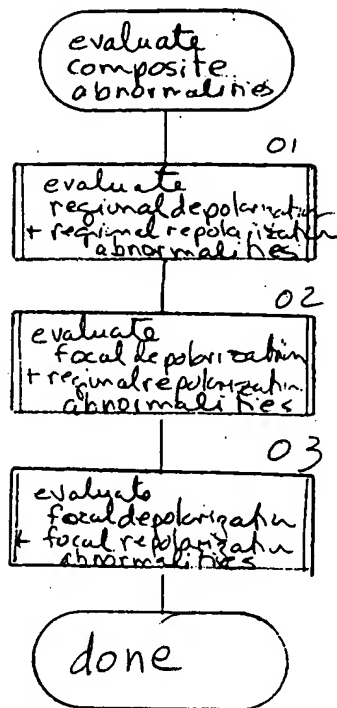 evaluate
composite
abnormalities
01
evaluate
regional depolarization
+ regional repolarization
abnormalities
02
evaluate
focal depolarization
+ regional repolarization
abnormalities
03
evaluate
focal depolarization
+ focal repolarization
abnormalities
done